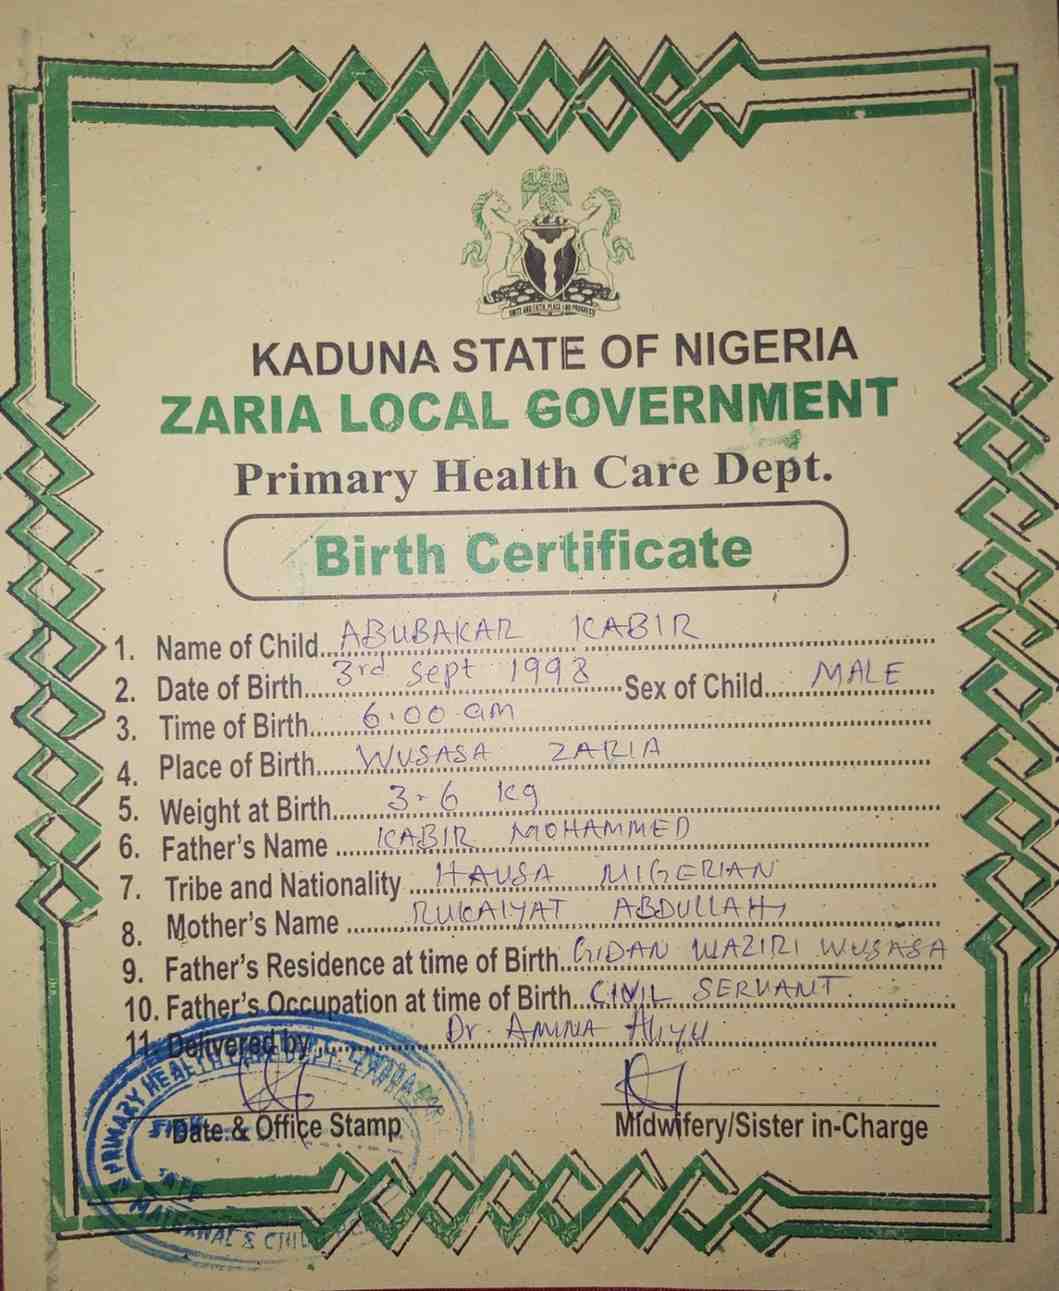 UNITY AND FAITH, PEACE AND PROGRESS
KADUNA STATE OF NIGERIA
ZARIA LOCAL GOVERNMENT
Primary Health Care Dept.
Birth Certificate
1. Name of Child...ABUBAKAR KABIR
2. Date of Birth...3rd Sept 1998...Sex of Child...MALE
3. Time of Birth...6:00 am
4. Place of Birth...WUSASA ZARIA
5. Weight at Birth...3.6 kg
6. Father's Name...KABIR MOHAMMED
7. Tribe and Nationality...HAUSA NIGERIAN
8. Mother's Name...RUKAIYAT ABDULLAHI
9. Father's Residence at time of Birth...GIDAN WAZIRI WUSASA
10. Father's Occupation at time of Birth...CIVIL SERVANT.
11. Delivered by...Dr. AMINA Aliyu
Date & Office Stamp Midwifery/Sister in-Charge
PRIMARY HEALTH CARE DEPT.
SIGN
DATE
MATERNAL &